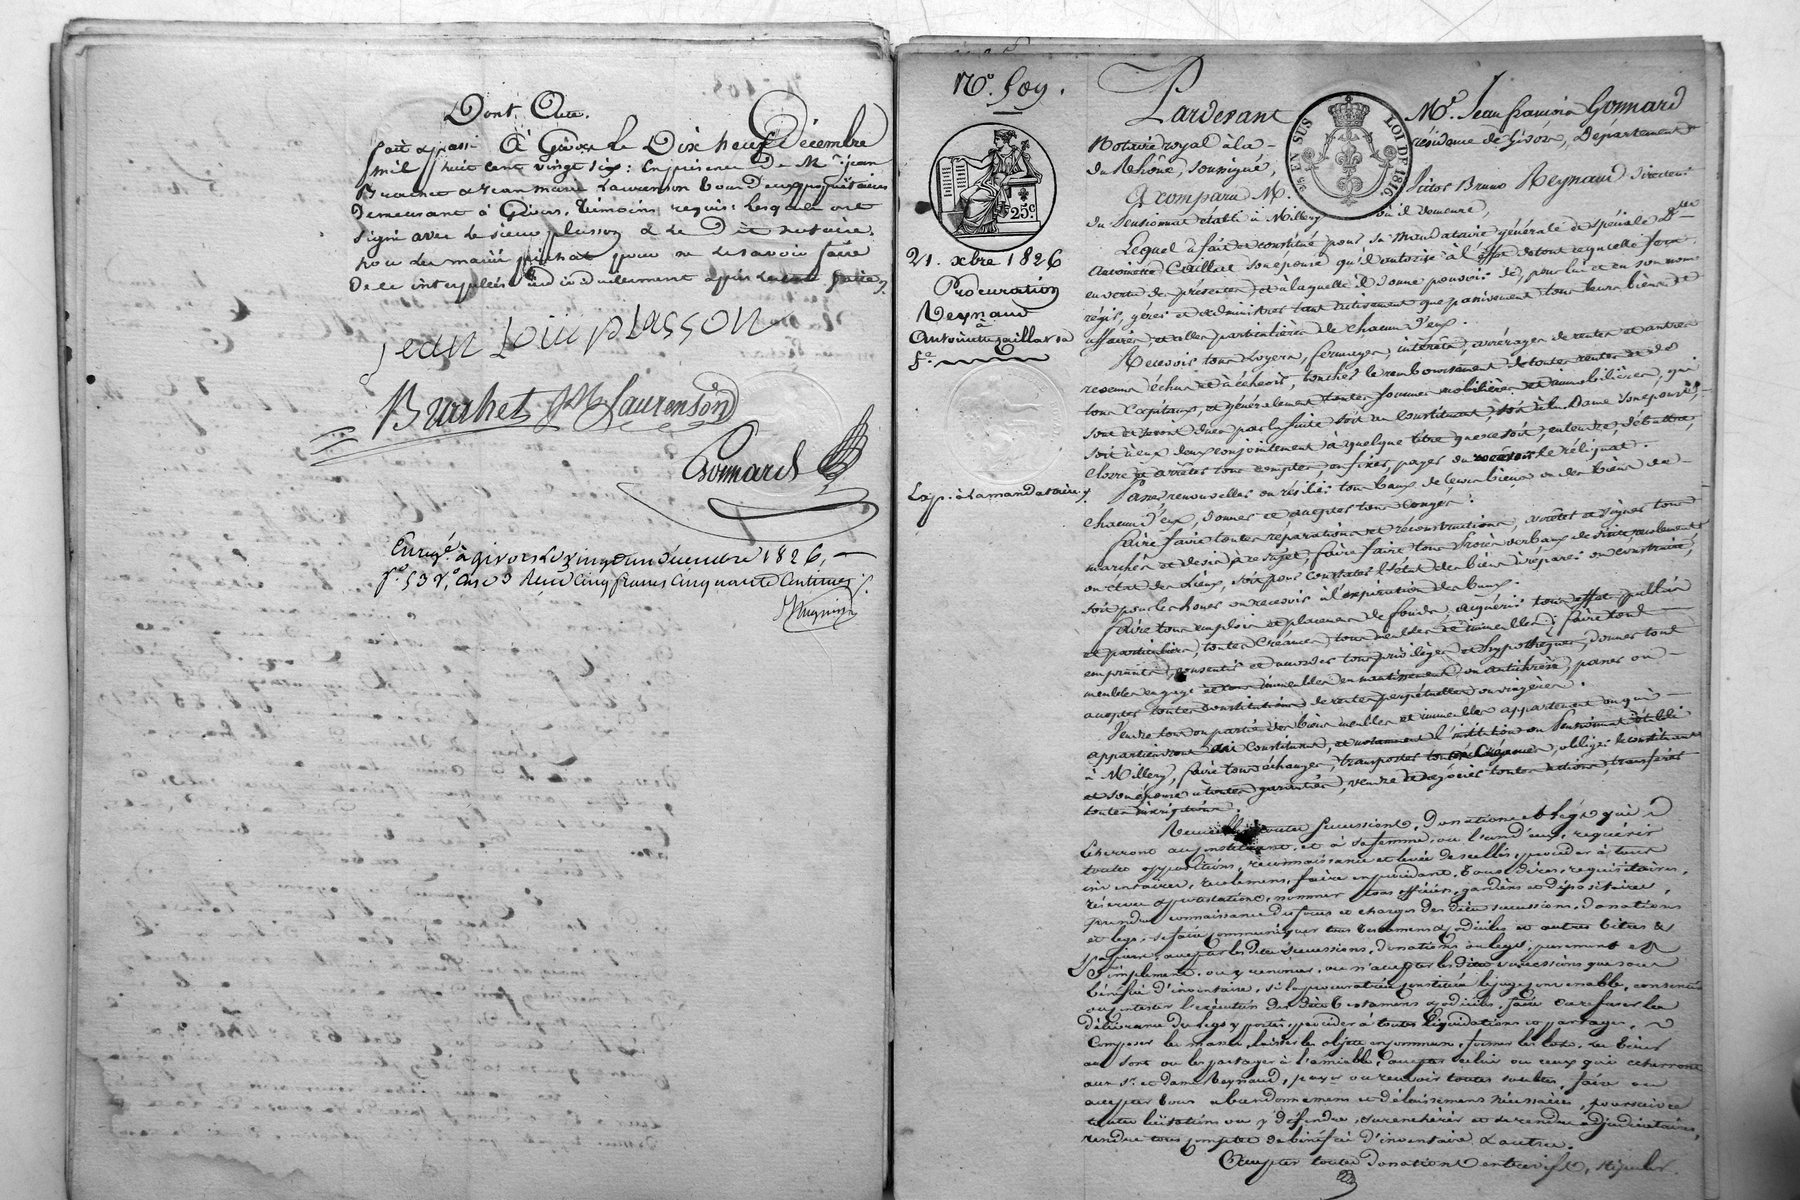 Dont Acte.
fait & passé A Givors le Dix neuf Décembre
mil huit cent vingt six; En présence de Mr. jean
Brachet & jean marie Laurenson tous deux propriétaires
demeurant à Givors, témoins requis; lesquels ont
signé avec le sieur plasson & le Dit notaire.
non les mariés pour ne le savoir faire
de ce interpellés individuellement après lecture faite
jean Louis plasson
Brachet JM Laurenson
Gonnard
Enregé. à givors le vingt un décembre 1826,
fo. 53 Vo. Cases 3 Reçu cinq francs cinquante centimes
No. 509.
25c
EN SUS
LOI DE 1816.
21. xbre 1826
Procuration
Reynaud
à
Antoinette Caillat sa
fe.
Exp. à la mandataire
Pardevant Mr. Jean françois Gonnard
Notaire royal à la résidence de Givors, Département
du Rhône, soussigné,
A comparu M. Bruno Reynaud Directeur
du Pensionnat établi à Millery où il demeure,
Lequel a fait et constitué pour sa Mandataire générale et spéciale Dme
Antoinette Caillat son épouse qu'il autorise à l'effet de tout ce qu'elle fera
en vertu des présentes, et à laquelle il donne pouvoir de, pour lui et en son nom
régir, gérer et administrer tant activement que passivement tous leurs biens et
affaires, et celles particulières de chacun d'eux.
Recevoir tous loyers, fermages, intérêts, arrérages de rentes et autres
revenus échus et à échoir, toucher le remboursement de toutes rentes et de
tous capitaux, et généralement toutes sommes mobilières et immobilières, qui
sont et seront dues par la suite soit au Constituant, soit à la Dame son épouse,
soit à eux deux conjointement à quelque titre que ce soit, entendre, débattre,
clore et arrêter tous comptes, en fixer, payer ou recevoir le réliquat.
Passer, renouveller ou résilier tous baux de leurs biens ou des biens de
chacun d'eux, donner et accepter tous congés;
faire faire toutes réparations et reconstructions, arrêter et signer tous
marchés et devis à ce sujet, faire faire tous procès verbaux de
ou état des lieux, soit pour constater l'état des biens à réparer ou construire,
soit pour les donner ou recevoir à l'expiration des baux.
faire tous emplois et placemens de fonds, acquérir tous effets publics
et particuliers, toutes Créances, tous meubles et immeubles; faire tous
emprunts, consentir et accorder tous privilèges et hypothèques, donner tous
meubles en gage et tous immeubles en nantissement ou antichrèse, passer ou
accepter toutes constitutions de rentes perpétuelles ou viagères.
Vendre tout ou partie des biens meubles et immeubles appartenant ou qui
appartiendront au Constituant, et notamment l'institution ou Pensionnat établi
à Millery, faire tous échanges, transporter toutes Créances, obliger le constituant
et son épouse à toutes garanties, vendre et négocier toutes actions, transférer
toutes inscriptions.
Recueillir toutes successions, donations et legs qui
écherront au constituant, et à sa femme, ou l'un d'eux, requérir
toutes oppositions, reconnaissance et levée de scellés, procéder à tous
inventaires, récolemens, faire en procédant tous dires, réquisitoires,
réserves & protestations, nommer tous officiers, gardiens et dépositaires,
prendre connaissance des forces et charges des dites successions, donations
et legs, se faire communiquer tous testamens & codiciles et autres titres &
papiers, accepter les dites successions, donations ou legs, purement et
simplement, ou y renoncer, ou n'accepter les dites successions que sous
bénéfice d'inventaire, si la procuratrice constituée le juge convenable, consentir
ou contester l'exécution des dits testamens & codiciles, faire ou refuser la
délivrance des legs y portés, procéder à toutes liquidations et partages,
composer les masses, laisser les objets en commun, former les lots, les tirer
au sort ou les partager à l'amiable, accepter celui ou ceux qui écherront
aux sr. et dame Reynaud, payer ou recevoir toutes soultes, faire ou
accepter tous abandonnemens et délaissemens nécessaires, poursuivre
toutes licitations ou y défendre, surenchérir et se rendre adjudicataires,
rendre tous comptes de bénéfice d'inventaire & autres.
Accepter toutes donations entrevifs, stipuler